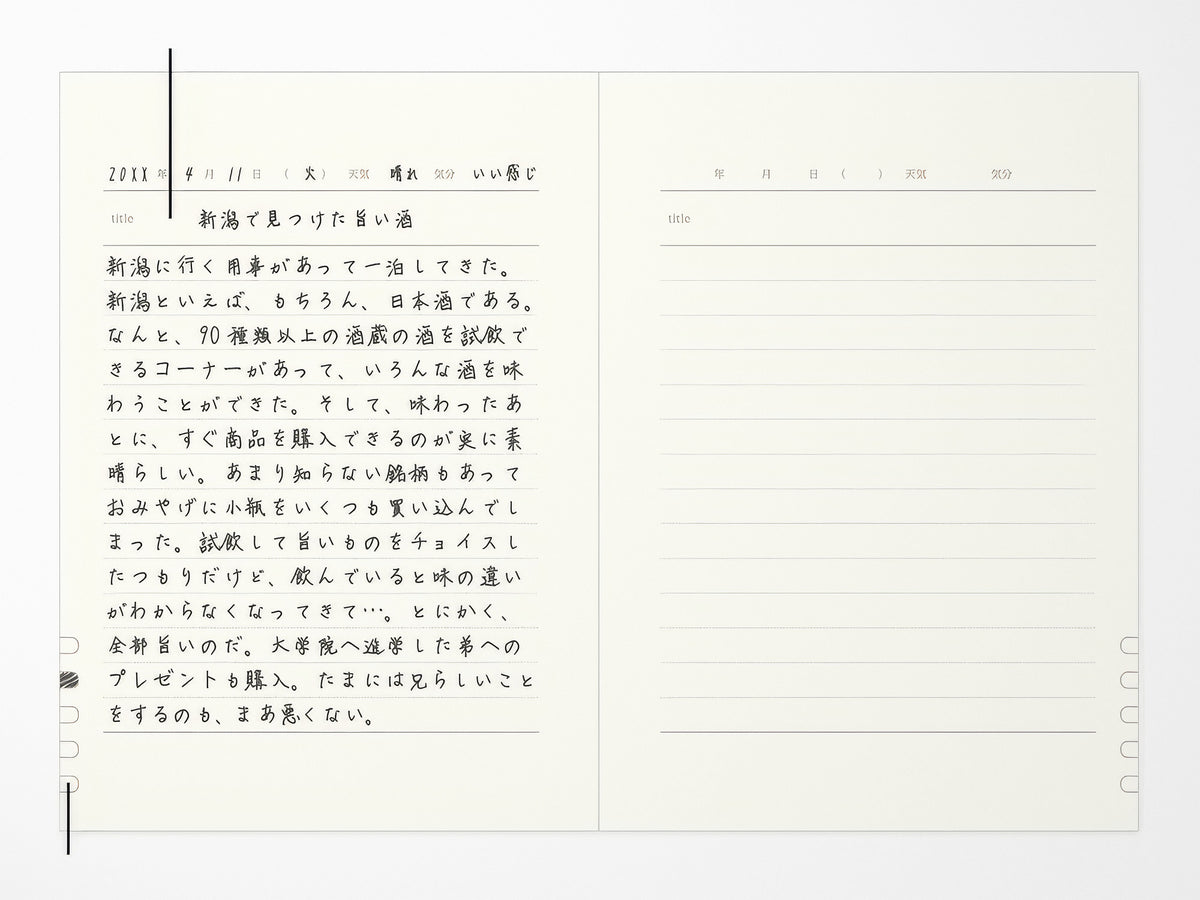 20XX年 4月 11日 (火) 天気 晴れ 気分 いい感じ
title 新潟で見つけた旨い酒
新潟に行く用事があって一泊してきた。
新潟といえば、もちろん、日本酒である。
なんと、90種類以上の酒蔵の酒を試飲で
きるコーナーがあって、いろんな酒を味
わうことができた。そして、味わったあ
とに、すぐ商品を購入できるのが実に素
晴らしい。あまり知らない銘柄もあって
おみやげに小瓶をいくつも買い込んでし
まった。試飲して旨いものをチョイスし
たつもりだけど、飲んでいると味の違い
がわからなくなってきて…。とにかく、
全部旨いのだ。大学院へ進学した弟への
プレゼントも購入。たまには兄らしいこと
をするのも、まあ悪くない。
年 月 日 ( ) 天気 気分
title